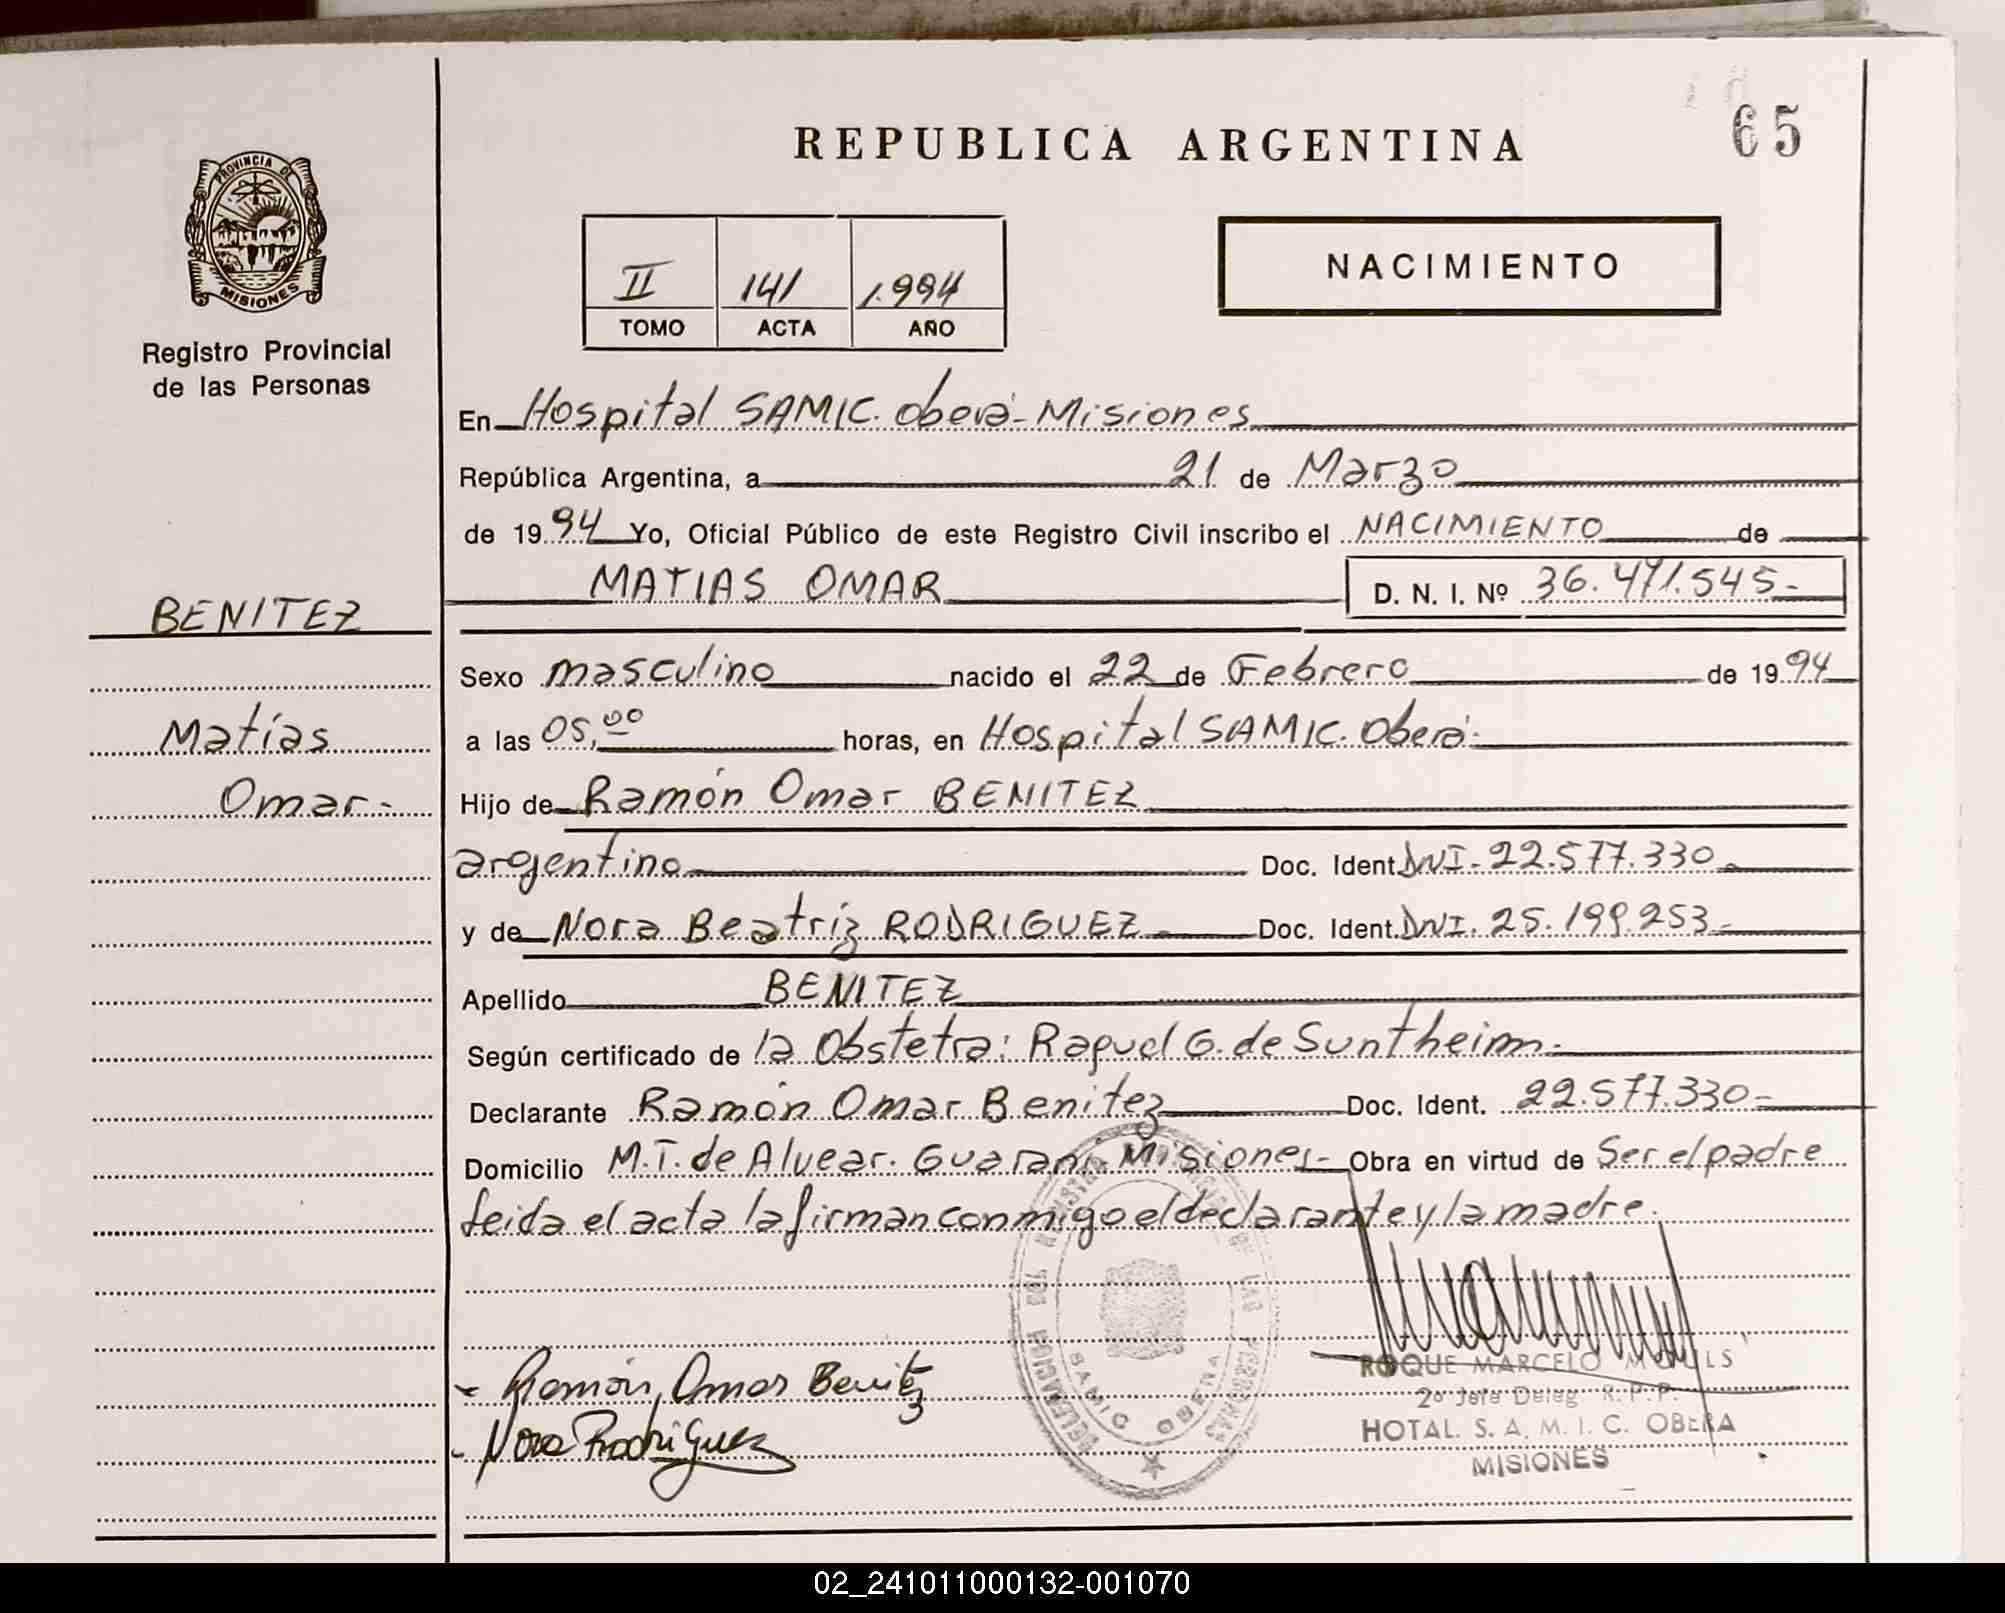 REPUBLICA ARGENTINA
65
PROVINCIA DE
MISIONES
Registro Provincial
de las Personas
II 141 1.994
TOMO ACTA AÑO
NACIMIENTO
En Hospital SAMIC. Oberá - Misiones
República Argentina, a 21 de Marzo
de 1994 Yo, Oficial Público de este Registro Civil inscribo el NACIMIENTO de
MATIAS OMAR D. N. I. Nº 36.471.545.-
BENITEZ
Matías
Omar.-
Sexo masculino nacido el 22 de Febrero de 1994
a las 05,00 horas, en Hospital SAMIC. Oberá.
Hijo de Ramón Omar BENITEZ
argentino Doc. Ident. DNI. 22.577.330
y de Nora Beatriz RODRIGUEZ Doc. Ident. DNI. 25.199.253.-
Apellido BENITEZ
Según certificado de la Obstetra: Raquel G. de Suntheim.
Declarante Ramón Omar Benitez Doc. Ident. 22.577.330-
Domicilio M.T. de Alvear. Guaraní Misiones.- Obra en virtud de Ser el padre
leida el acta la firman conmigo el declarante y la madre.
Ramón, Omar Benitez
Nora Rodriguez
DELEGACION DEL REGISTRO PROVINCIAL DE LAS PERSONAS
SAMIC OBERA
ROQUE MARCELO
2º Jefe Deleg. R. P. P.
HOTAL. S. A. M. I. C. OBERA
MISIONES
02_241011000132-001070